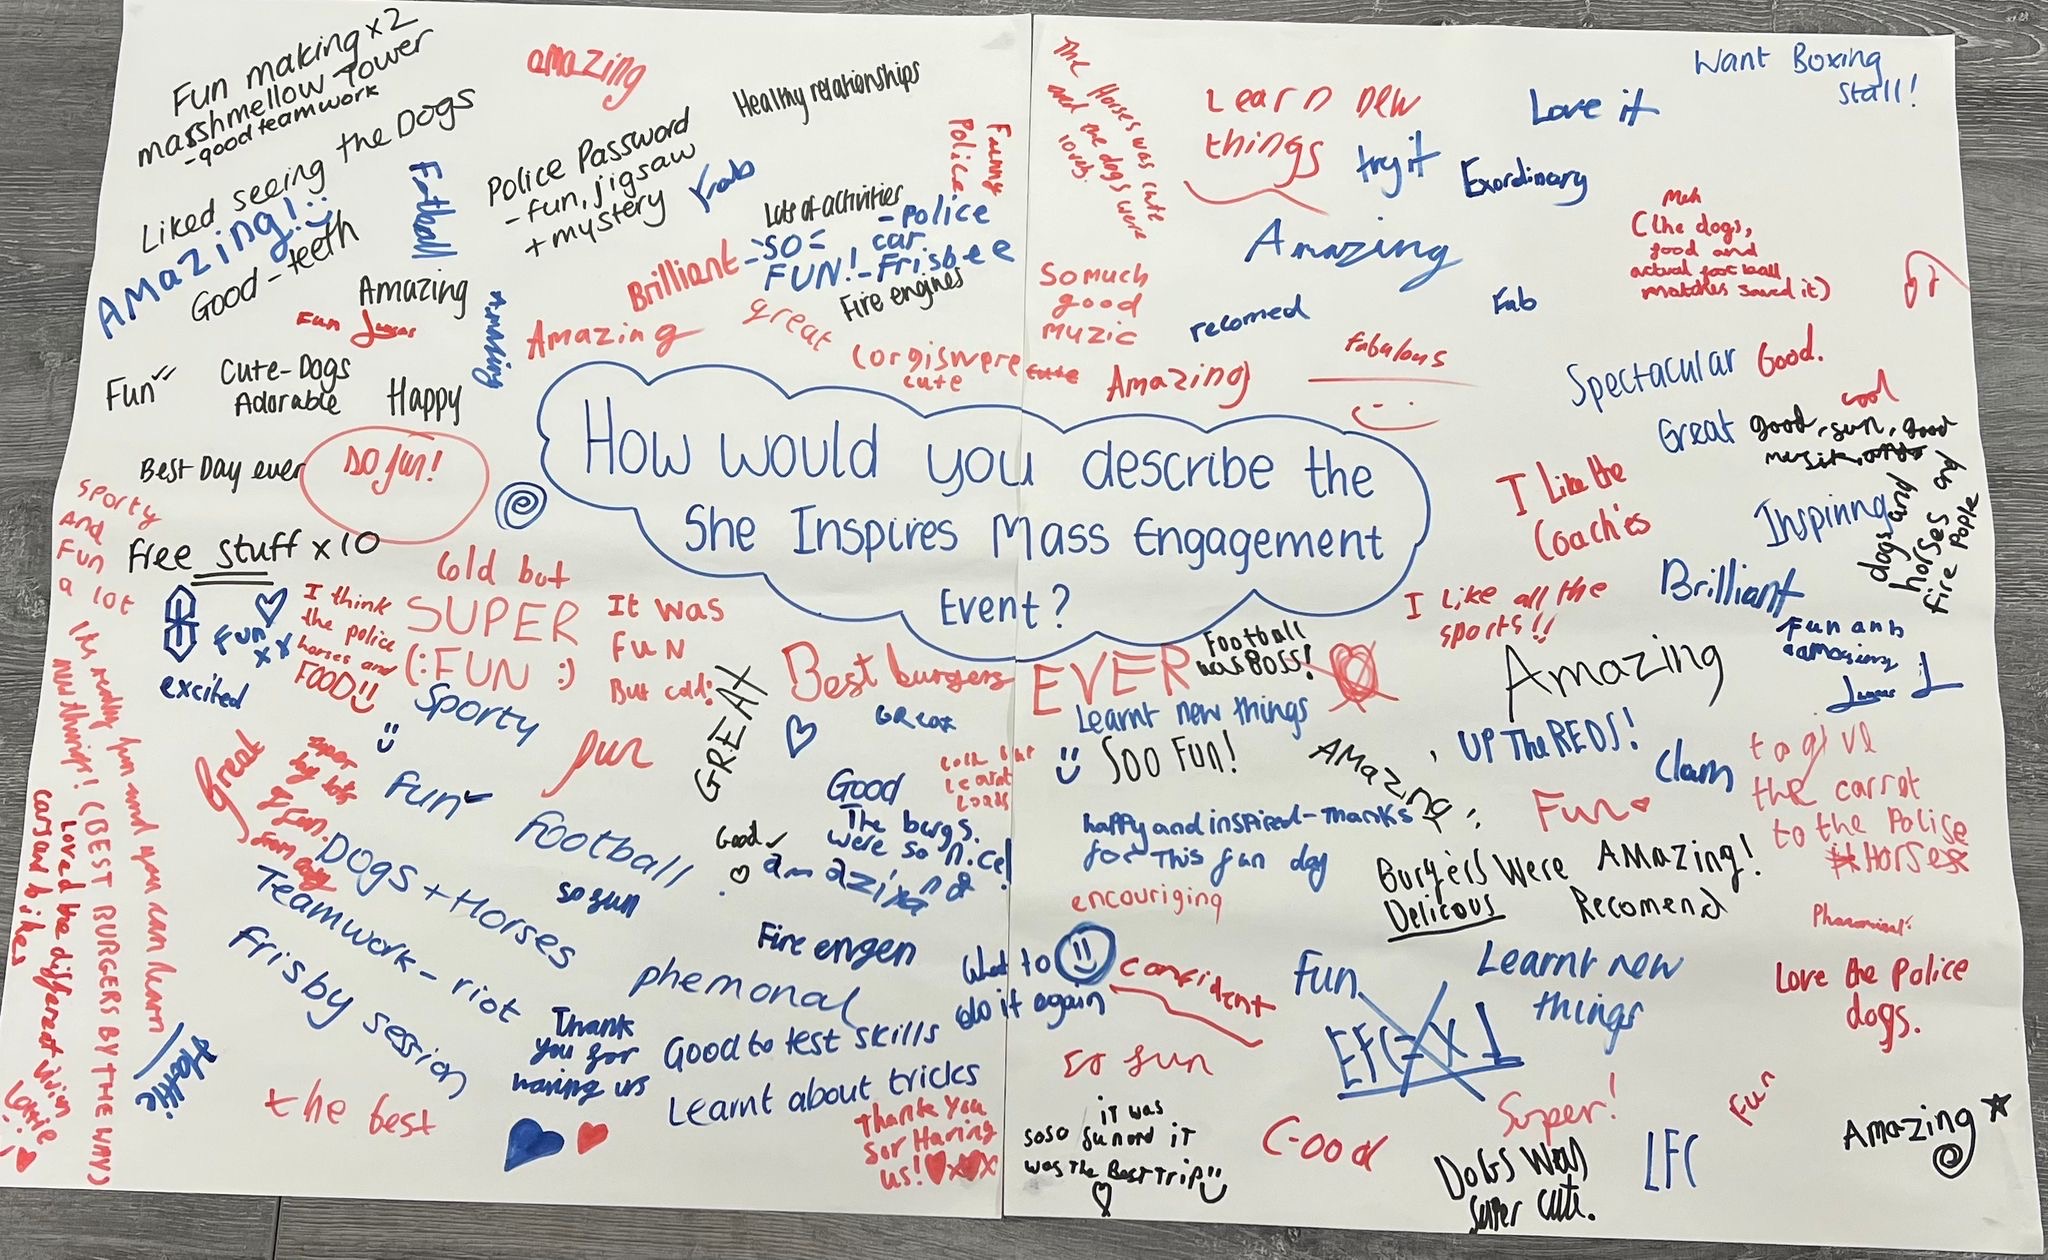 Fun making x2
marshmellow Tower
- good teamwork
Liked seeing the Dogs
AMazing!
Good - teeth
amazing
Healthy relationships
Football
Police Password
- fun, jigsaw
+ mystery
Fab
Funny
Police
Lots of activities
- SO =
FUN!
- Police
car
- Frisbee
Fire engines
Brilliant
Amazing
Fun
Amazing
Amazing
great
Corgis were cute
cute
Fun
Cute - Dogs
Adorable
Happy
Best Day ever
SO fun!
free stuff x 10
sporty
and
Fun
a lot
The Horses was cute
and the dogs were
lovely.
Learn new
things
try it
Love it
Want Boxing
Stall!
Exordinary
Amazing
Meh
(The dogs,
food and
actual football
matches saved it)
So much
good
muzic
recomed
Fab
fabulous
Amazing
Spectacular
Good.
cool
Great
good, sun, good
music,
dogs and
horses and
fire Pople
I Like the
Coach'es
Inspiring
Brilliant
I Like all the
sports!!
Fun and
Amazing
UP THE REDS!
Clam
to give
the carrot
to the Police
Horses
How would you describe the
She Inspires Mass Engagement
Event?
Cold but
SUPER
(: FUN :)
It was
FUN
But cold!
I think
the police
horses and
FOOD!!
Fun xx
excited
Sporty
GREAT
Best burgers EVER
Football
was BOSS!
Great
Learnt new things
SOO FUN!
AMazing
its really fun and you can learn
new things! (BEST BURGERS BY THE WAY)
Loved the different
cars and bikes
Great
super
big lots
of fun.
fun
Fun
football
so fun
Good
Good
The burgs.
were so nice!
amazing
learnt
loads
happy and inspired - Thanks
for This fun day
encouriging
Fun
Burgers Were AMazing!
Delicous
Recomend
Dogs + Horses
Teamwork - riot
Frisby session
Fire engen
phemonal
Thank
you for
having us
Good to test skills
Learnt about tricks
do it again
confident
Fun
EFC
Learnt new
things
Love the Police
dogs.
Hattie
the best
Thank You
for Having
us!
so fun
it was
soso fun and it
was the Best Trip
Good
Super!
Dogs Was
super cute.
LFC
Fun
Amazing